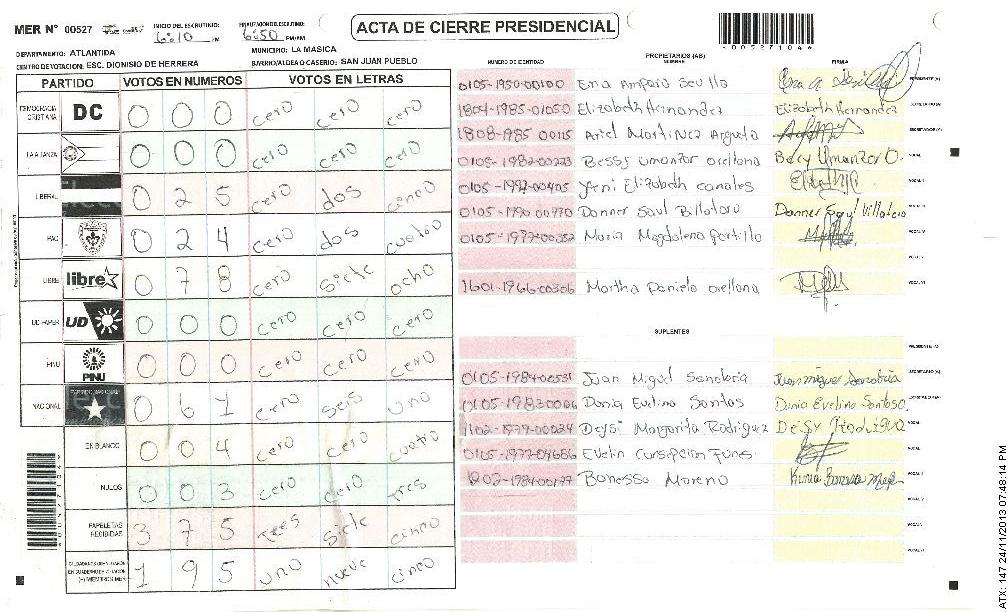 MER N° 00527
INICIO DEL ESCRUTINIO: 6:10 PM
FINALIZACION DEL ESCRUTINIO: 6:50 PM/AM
ACTA DE CIERRE PRESIDENCIAL
DEPARTAMENTO: ATLANTIDA
MUNICIPIO: LA MASICA
CENTRO DE VOTACION: ESC. DIONISIO DE HERRERA
BARRIO/ALDEA O CASERIO: SAN JUAN PUEBLO
PARTIDO VOTOS EN NUMEROS VOTOS EN LETRAS
DEMOCRACIA CRISTIANA DC 0 0 0 cero cero cero
LA ALIANZA 0 0 0 cero cero cero
LIBERAL 0 2 5 cero dos cinco
PAC 0 2 4 cero dos cuatro
LIBRE libre 0 7 8 cero siete ocho
UD FAPER UD 0 0 0 cero cero cero
PINU PINU 0 0 0 cero cero cero
NACIONAL 0 6 1 cero seis uno
EN BLANCO 0 0 4 cero cero cuatro
NULOS 0 0 3 cero cero tres
PAPELETAS RECIBIDAS 3 7 5 tres siete cinco
1 9 5 uno nueve cinco
NUMERO DE IDENTIDAD PROPIETARIOS (AB) NOMBRE FIRMA
0105-1950-00100 Ena Amparo Sevilla PRESIDENTE (A)
1804-1985-01050 Elizabeth Hernandez Elizabeth Hernandez SECRETARIO (A)
1808-1985 00115 Ariel Martinez Argueta
0105-1982-00223 Bessy Umanzor orellana Umanzor O. VOCAL
0105-1992-00405 Yeni Elizabeth canales
0105-1990-00770 Donner Saul Billatoro Donner Saul Villatoro
0105-1977-00352 Maria Magdalena portillo
1601-1966-00306 Martha Daniela orellana
SUPLENTES
PRESIDENTE (A)
0105-1984-00531 Juan Miguel Sanabria Juan miguel Sanabria SECRETARIO (A)
0105-1983-0006 Dunia Evelina Santos Dunia Evelina Santos
1102-1979-00034 Deysi Margarita Rodriguez Deisy Rodriguez VOCAL
0105-1977-04686 Evelin Funes VOCAL
1202-1984-00177 Banessa Moreno
00527104
ATX: 147 24/11/2013 07:48:14 PM